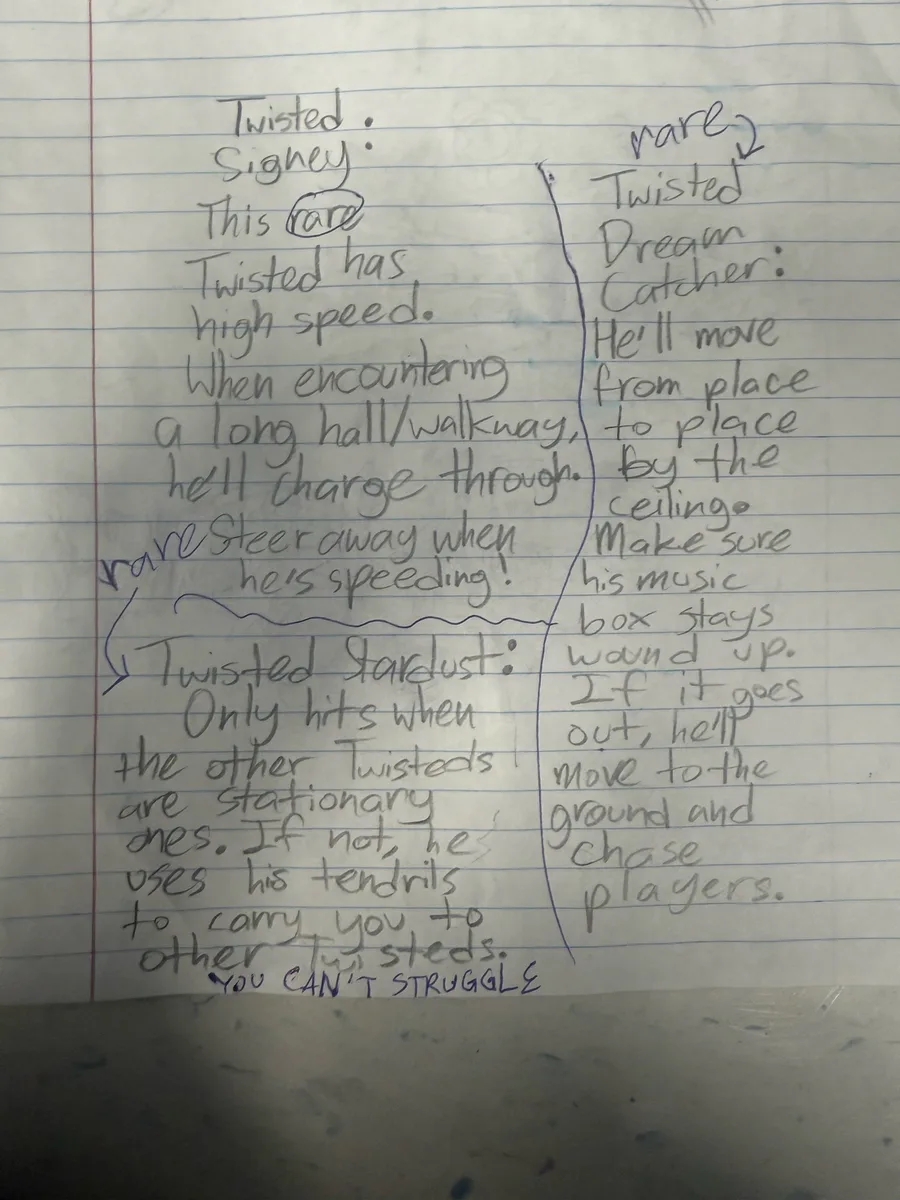 Twisted
Signey:
This rare
Twisted has
high speed.
When encountering
a long hall/walkway,
he'll charge through.
Steer away when
he's speeding!
rare
Twisted Stardust:
Only hits when
the other Twisteds
are stationary
ones. If not, he
uses his tendrils
to carry you to
other Twisteds.
YOU CAN'T STRUGGLE
rare
Twisted
Dream
Catcher:
He'll move
from place
to place
by the
ceiling.
Make sure
his music
box stays
wound up.
If it goes
out, he'll
move to the
ground and
chase
players.